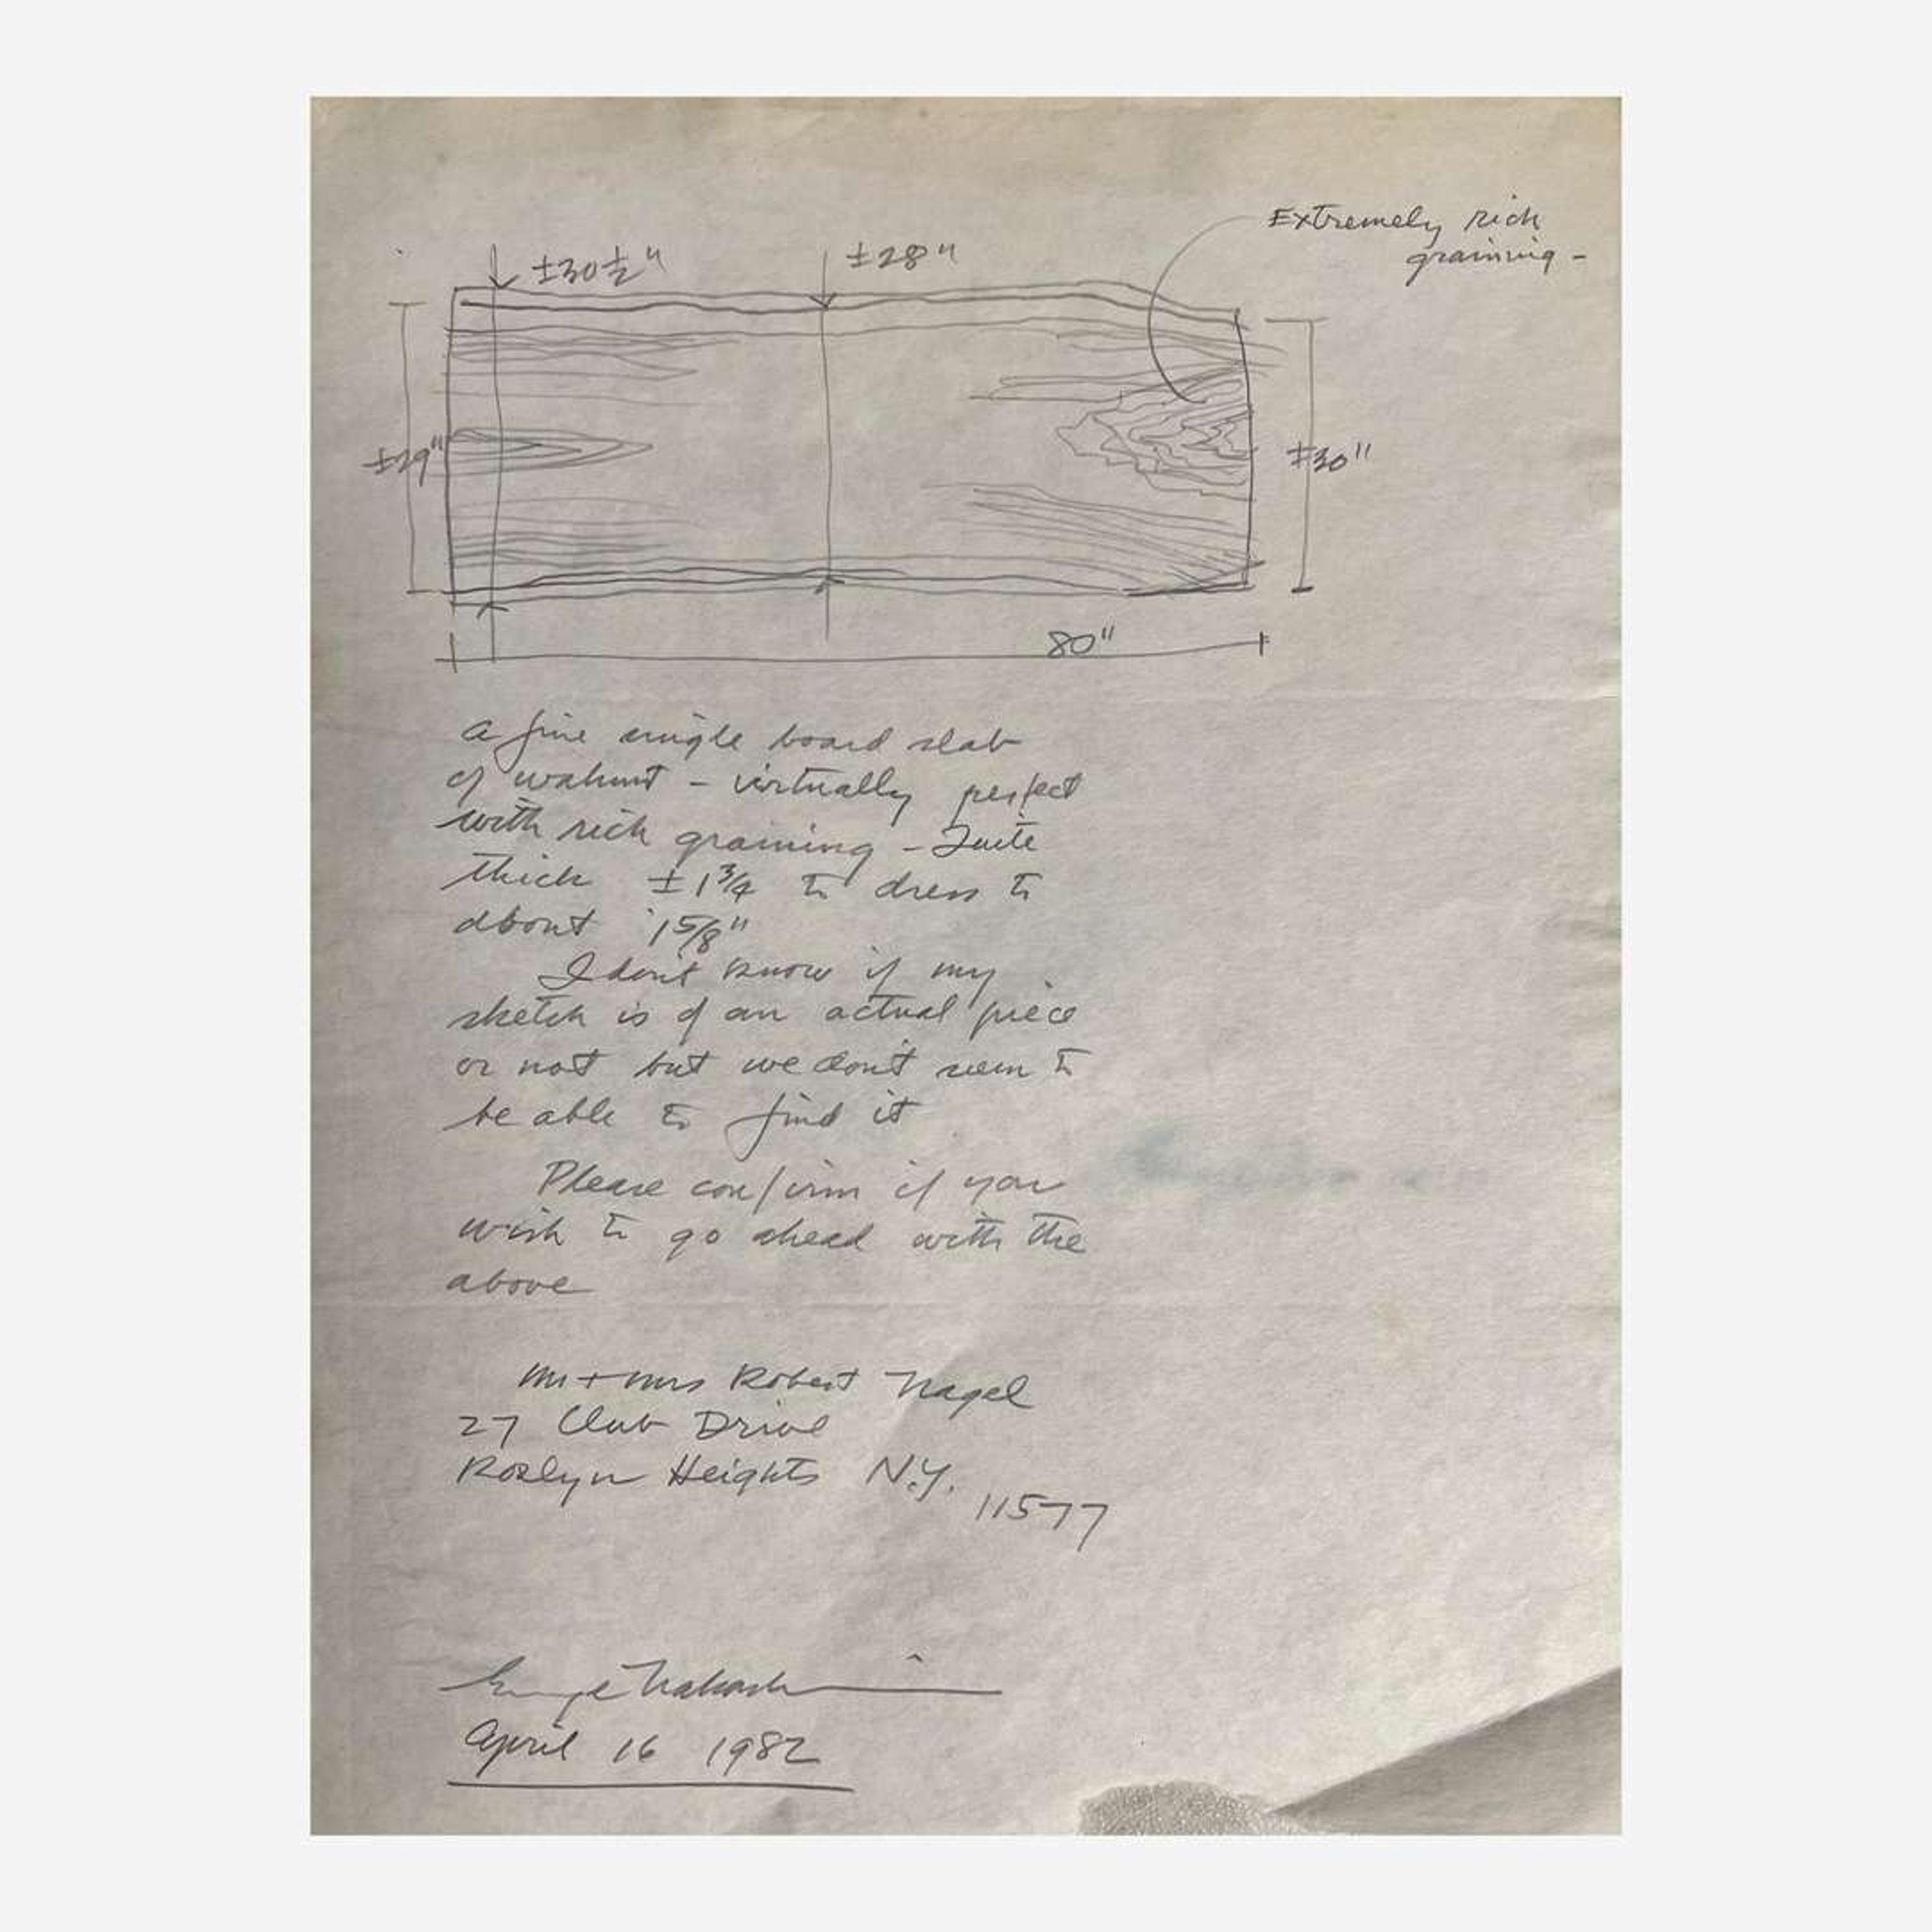 Extremely rich
graining -
±30½"
±28"
±29"
±30"
80"
A fine single board slab
of walnut - virtually perfect
with rich graining - Quite
thick ±1¾ to dress to
about 1⅝"
I don't know if my
sketch is of an actual piece
or not but we don't seem to
be able to find it
Please confirm if you
wish to go ahead with the
above
Mr + Mrs Robert Nagel
27 Club Drive
Roslyn Heights N.Y.
11577
George Nakashima
April 16 1982